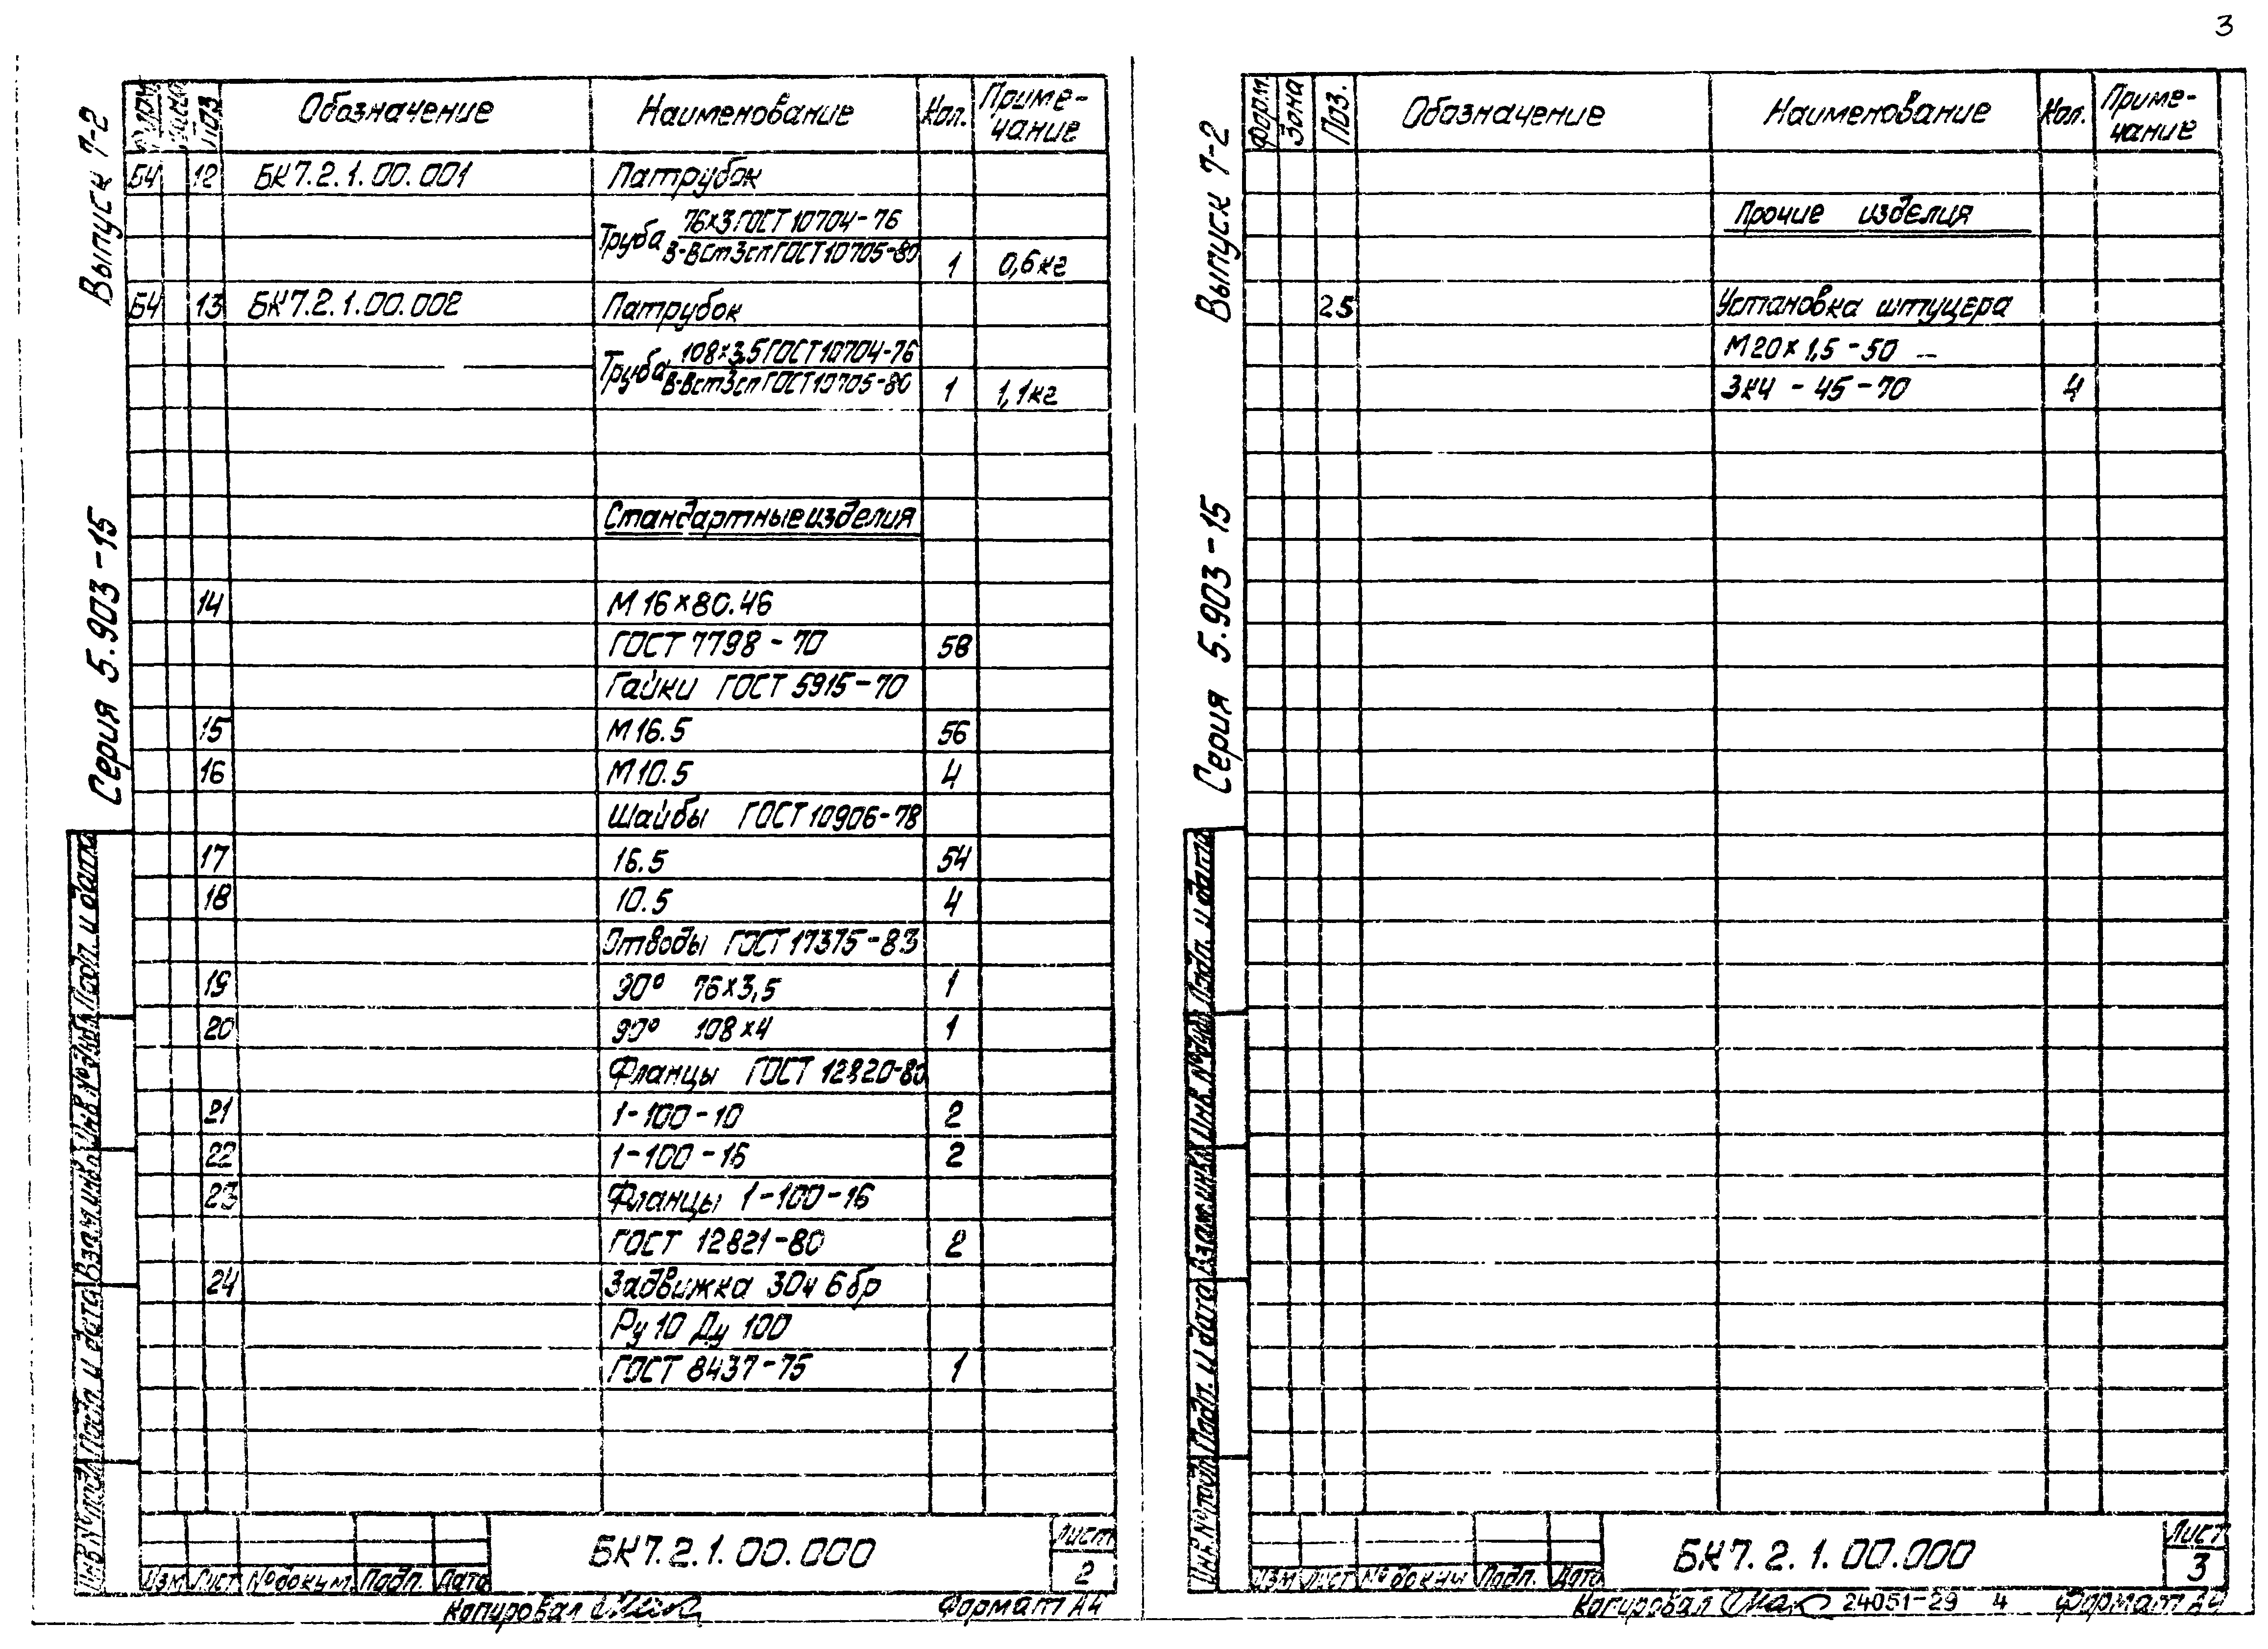 3
Выпуск 7-2
Серия 5.903-15
Форм. Зона Поз. Обозначение Наименование Кол. Приме-
чание
Б4 12 БК7.2.1.00.001 Патрубок
Труба 76×3 ГОСТ 10704-76
В-Вст3сп ГОСТ 10705-80 1 0,6кг
Б4 13 БК7.2.1.00.002 Патрубок
Труба 108×3,5 ГОСТ 10704-76
В-Вст3сп ГОСТ 10705-80 1 1,1кг
Стандартные изделия
14 М16×80.46
ГОСТ 7798-70 58
Гайки ГОСТ 5915-70
15 М16.5 56
16 М10.5 4
Шайбы ГОСТ 10906-78
17 16.5 54
18 10.5 4
Отводы ГОСТ 17375-83
19 90° 76×3,5 1
20 90° 108×4 1
Фланцы ГОСТ 12820-80
21 1-100-10 2
22 1-100-16 2
23 Фланцы 1-100-16
ГОСТ 12821-80 2
24 Задвижка 30ч6бр
Ру10 Ду 100
ГОСТ 8437-75 1
Инв.№подл. Подп. и дата Взам.инв.№ Инв.№дубл. Подп. и дата
Изм Лист №докум. Подп. Дата
БК7.2.1.00.000
Лист
2
Копировал
Формат А4
Выпуск 7-2
Серия 5.903-15
Форм. Зона Поз. Обозначение Наименование Кол. Приме-
чание
Прочие изделия
25 Установка штуцера
М20×1,5-50 –
ЗК4-45-70 4
Инв.№подл. Подп. и дата Взам.инв.№ Инв.№дубл. Подп. и дата
Изм Лист №докум Подп. Дата
БК7.2.1.00.000
Лист
3
Копировал 24051-29 4 Формат А4